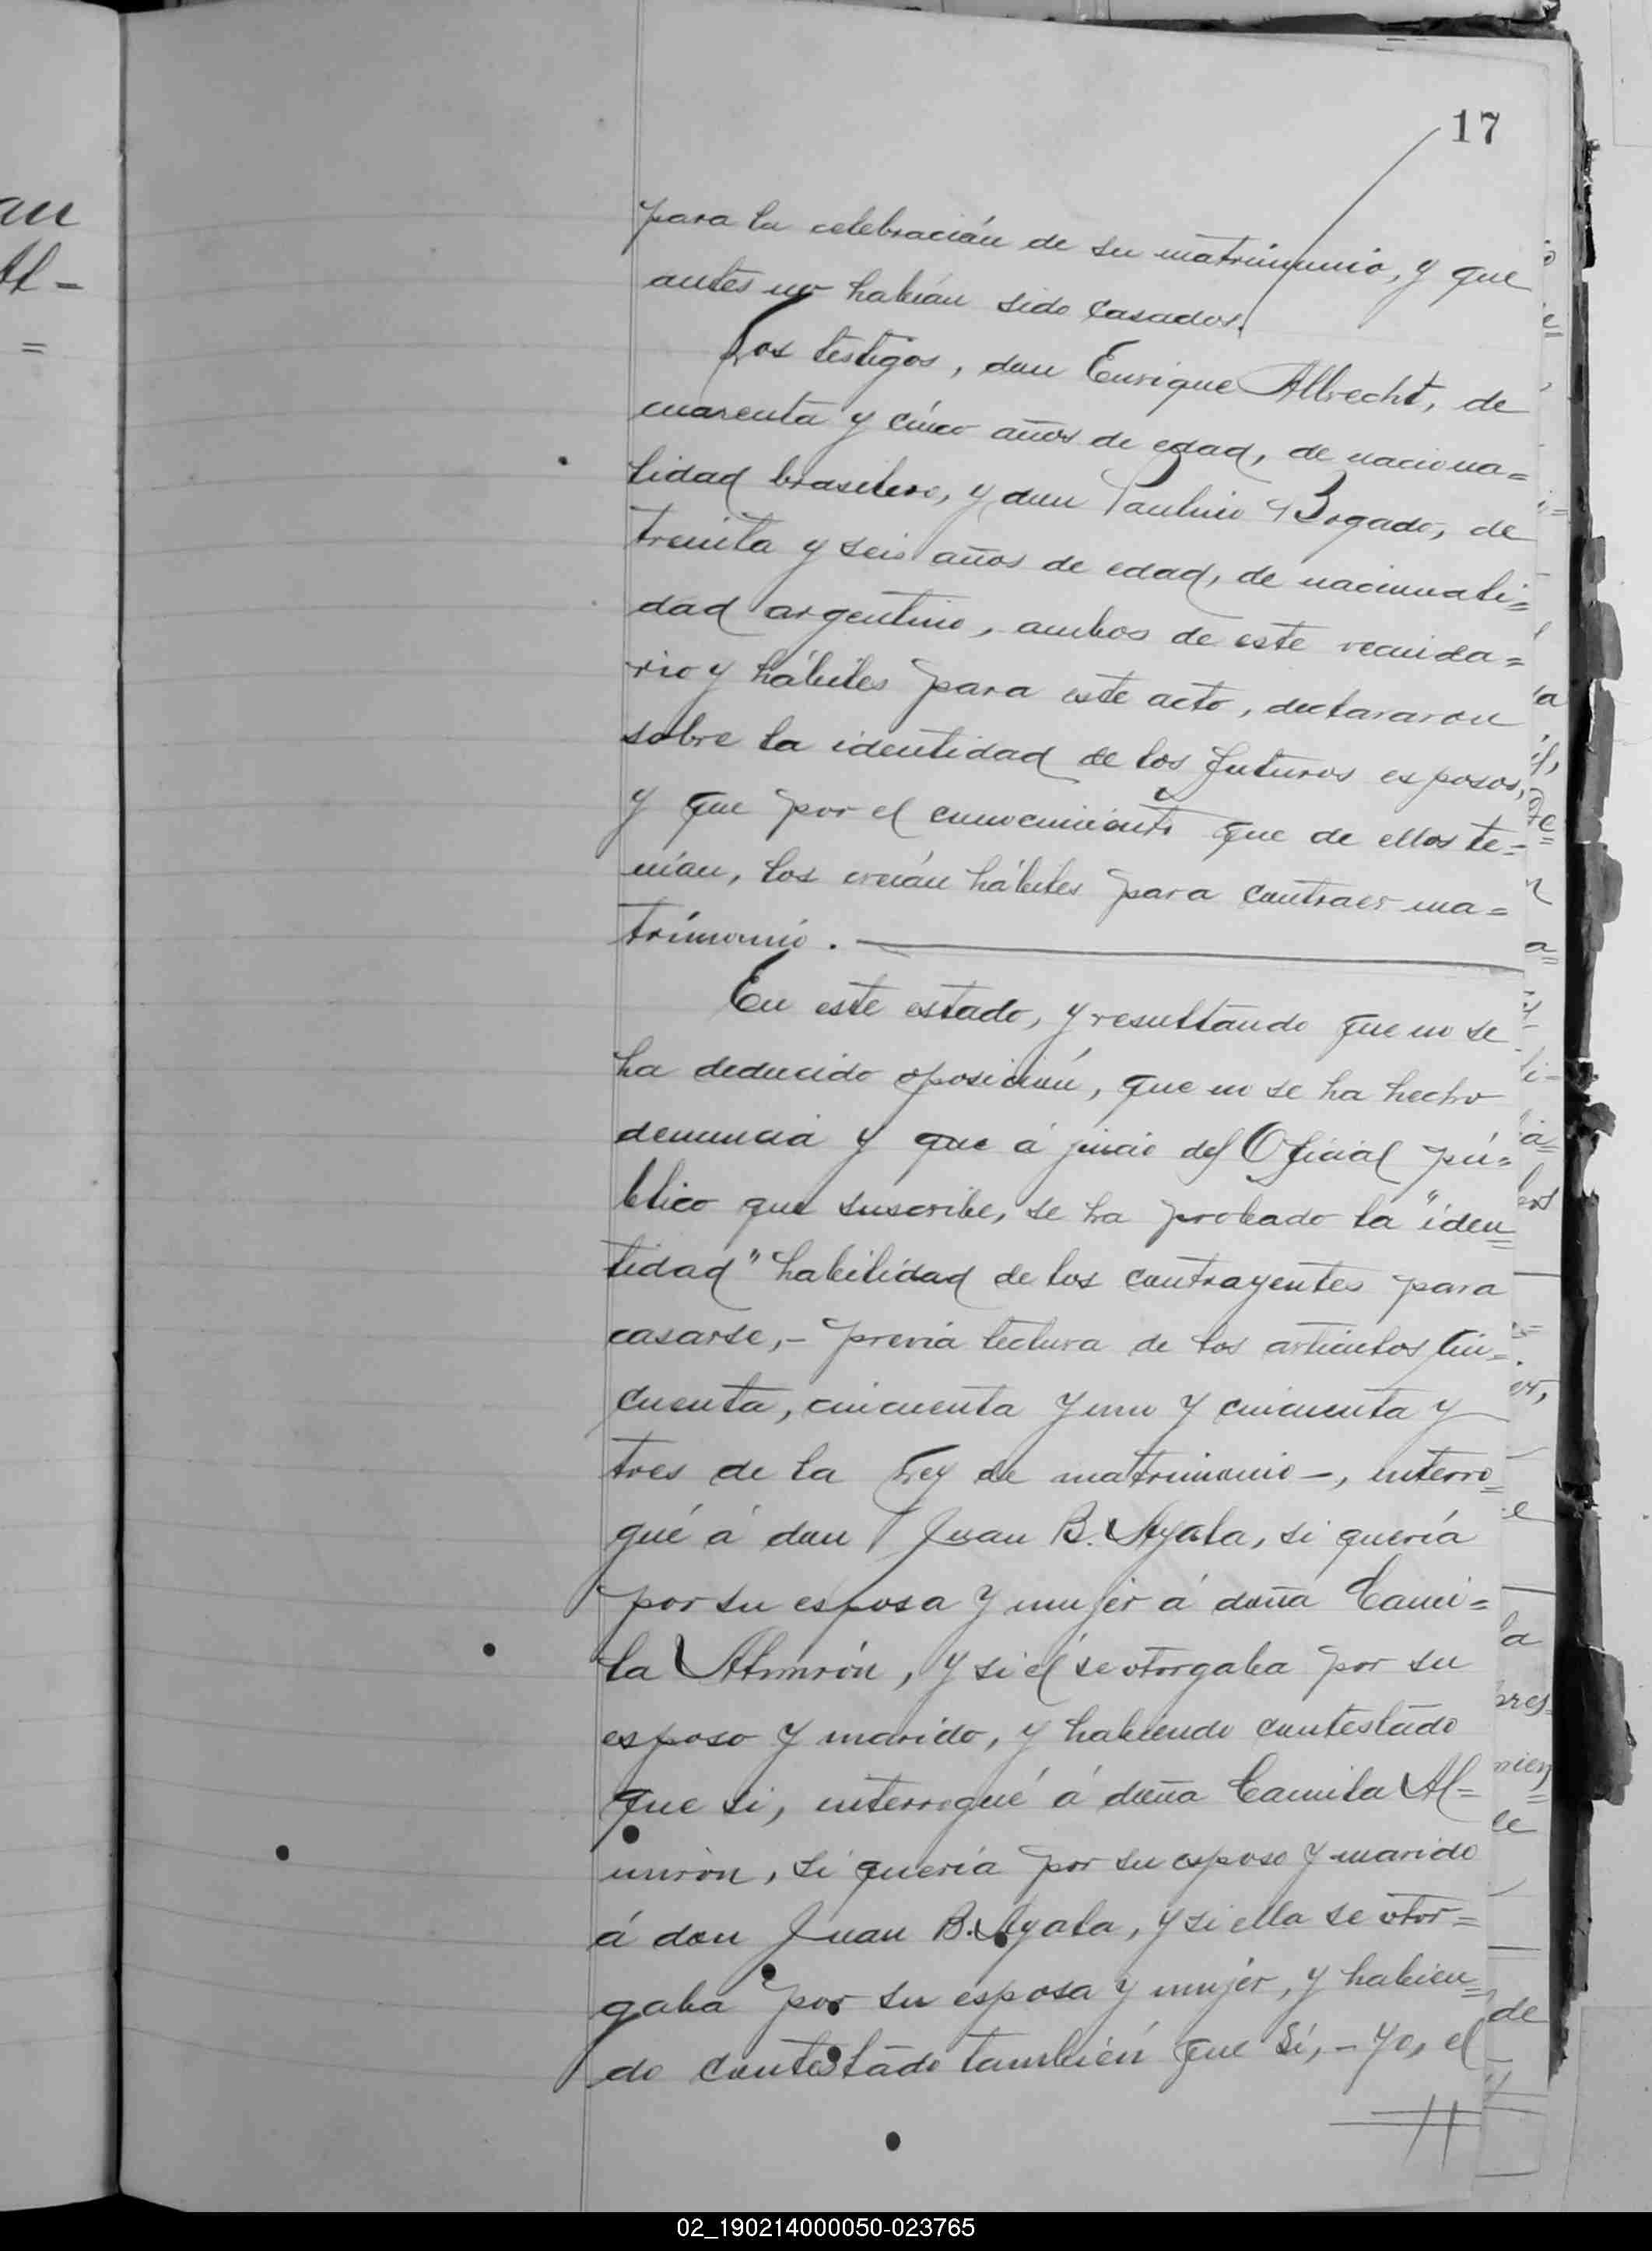 17
au
Al-
=
para la celebración de su matrimonio, y que
antes no habían sido casados.
Los testigos, don Enrique Albrecht, de
cuarenta y cinco años de edad, de naciona=
lidad brasilero, y don Paulino Bogado, de
treinta y seis años de edad, de nacionali=
dad argentino, ambos de este vecinda=
rio y hábiles para este acto, declararon
sobre la identidad de los futuros esposos,
y que por el conocimiento que de ellos te=
nían, los creían hábiles para contraer ma=
trimonio.
En este estado, y resultando que no se
ha deducido oposición, que no se ha hecho
denuncia y que á juicio del Oficial pú=
blico que suscribe, se ha probado la "iden=
tidad" habilidad de los contrayentes para
casarse,- previa lectura de los artículos cin=
cuenta, cincuenta y uno y cincuenta y
tres de la Ley de matrimonio-, interro=
gué á don Juan B. Ayala, si quería
por su esposa y mujer á doña Cami=
la Almirón, y si él se otorgaba por su
esposo y marido, y habiendo contestado
que si, interrogué á doña Camila Al=
mirón, si quería por su esposo y marido
á don Juan B. Ayala, y si ella se otor=
gaba por su esposa y mujer, y habien=
do contestado también que sí,- Yo, el
02_190214000050-023765